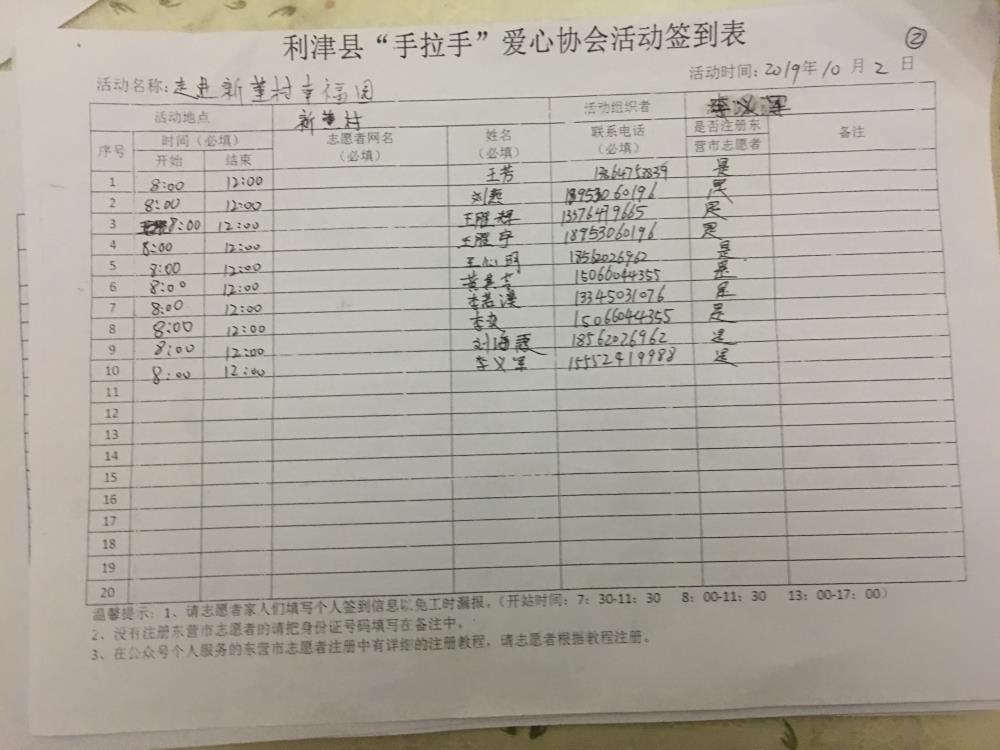 利津县“手拉手”爱心协会活动签到表 ②
活动名称:走进新董村幸福园 活动时间:2019年10月2日
活动地点 新董村 活动组织者 李义军
序号 时间（必填） 志愿者网名（必填） 姓名（必填） 联系电话（必填） 是否注册东营市志愿者 备注
开始 结束
1 8:00 12:00 王芳 是
2 8:00 12:00 刘燕 18953060196 是
3 8:00 12:00 13376479665 是
4 8:00 12:00 王耀宇 18953060196 是
5 8:00 12:00 王心明 18562026962 是
6 8:00 12:00 15066044355 是
7 8:00 12:00 13345031076 是
8 8:00 12:00 李奕 15066044355 是
9 8:00 12:00 刘海霞 18562026962 是
10 8:00 12:00 李义军 15552419988 是
11
12
13
14
15
16
17
18
19
20
温馨提示：1、请志愿者家人们填写个人签到信息以免工时漏报。（开始时间：7：30-11：30 8：00-11：30 13：00-17：00）
2、没有注册东营市志愿者的请把身份证号码填写在备注中。
3、在公众号个人服务的东营市志愿者注册中有详细的注册教程，请志愿者根据教程注册。